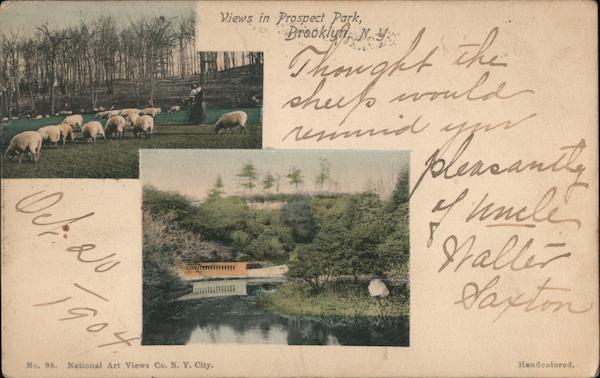 Views in Prospect Park,
Brooklyn, N. Y.
Thought the
sheep would
remind you
pleasantly
of Uncle
Walter
Saxton
Oct. 20
1904.
No. 95. National Art Views Co. N. Y. City.
Handcolored.